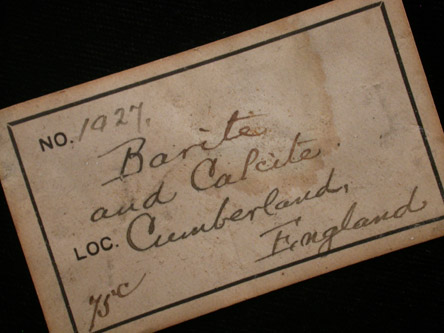 NO. 1927.
Barite
and Calcite.
LOC. Cumberland,
England
75c